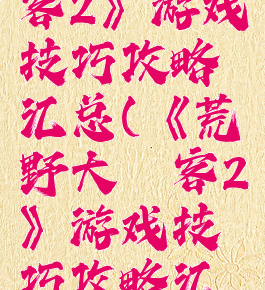 客2》 游戏
技巧攻略
汇总(《荒
野大 客2
》游戏技
巧攻略汇